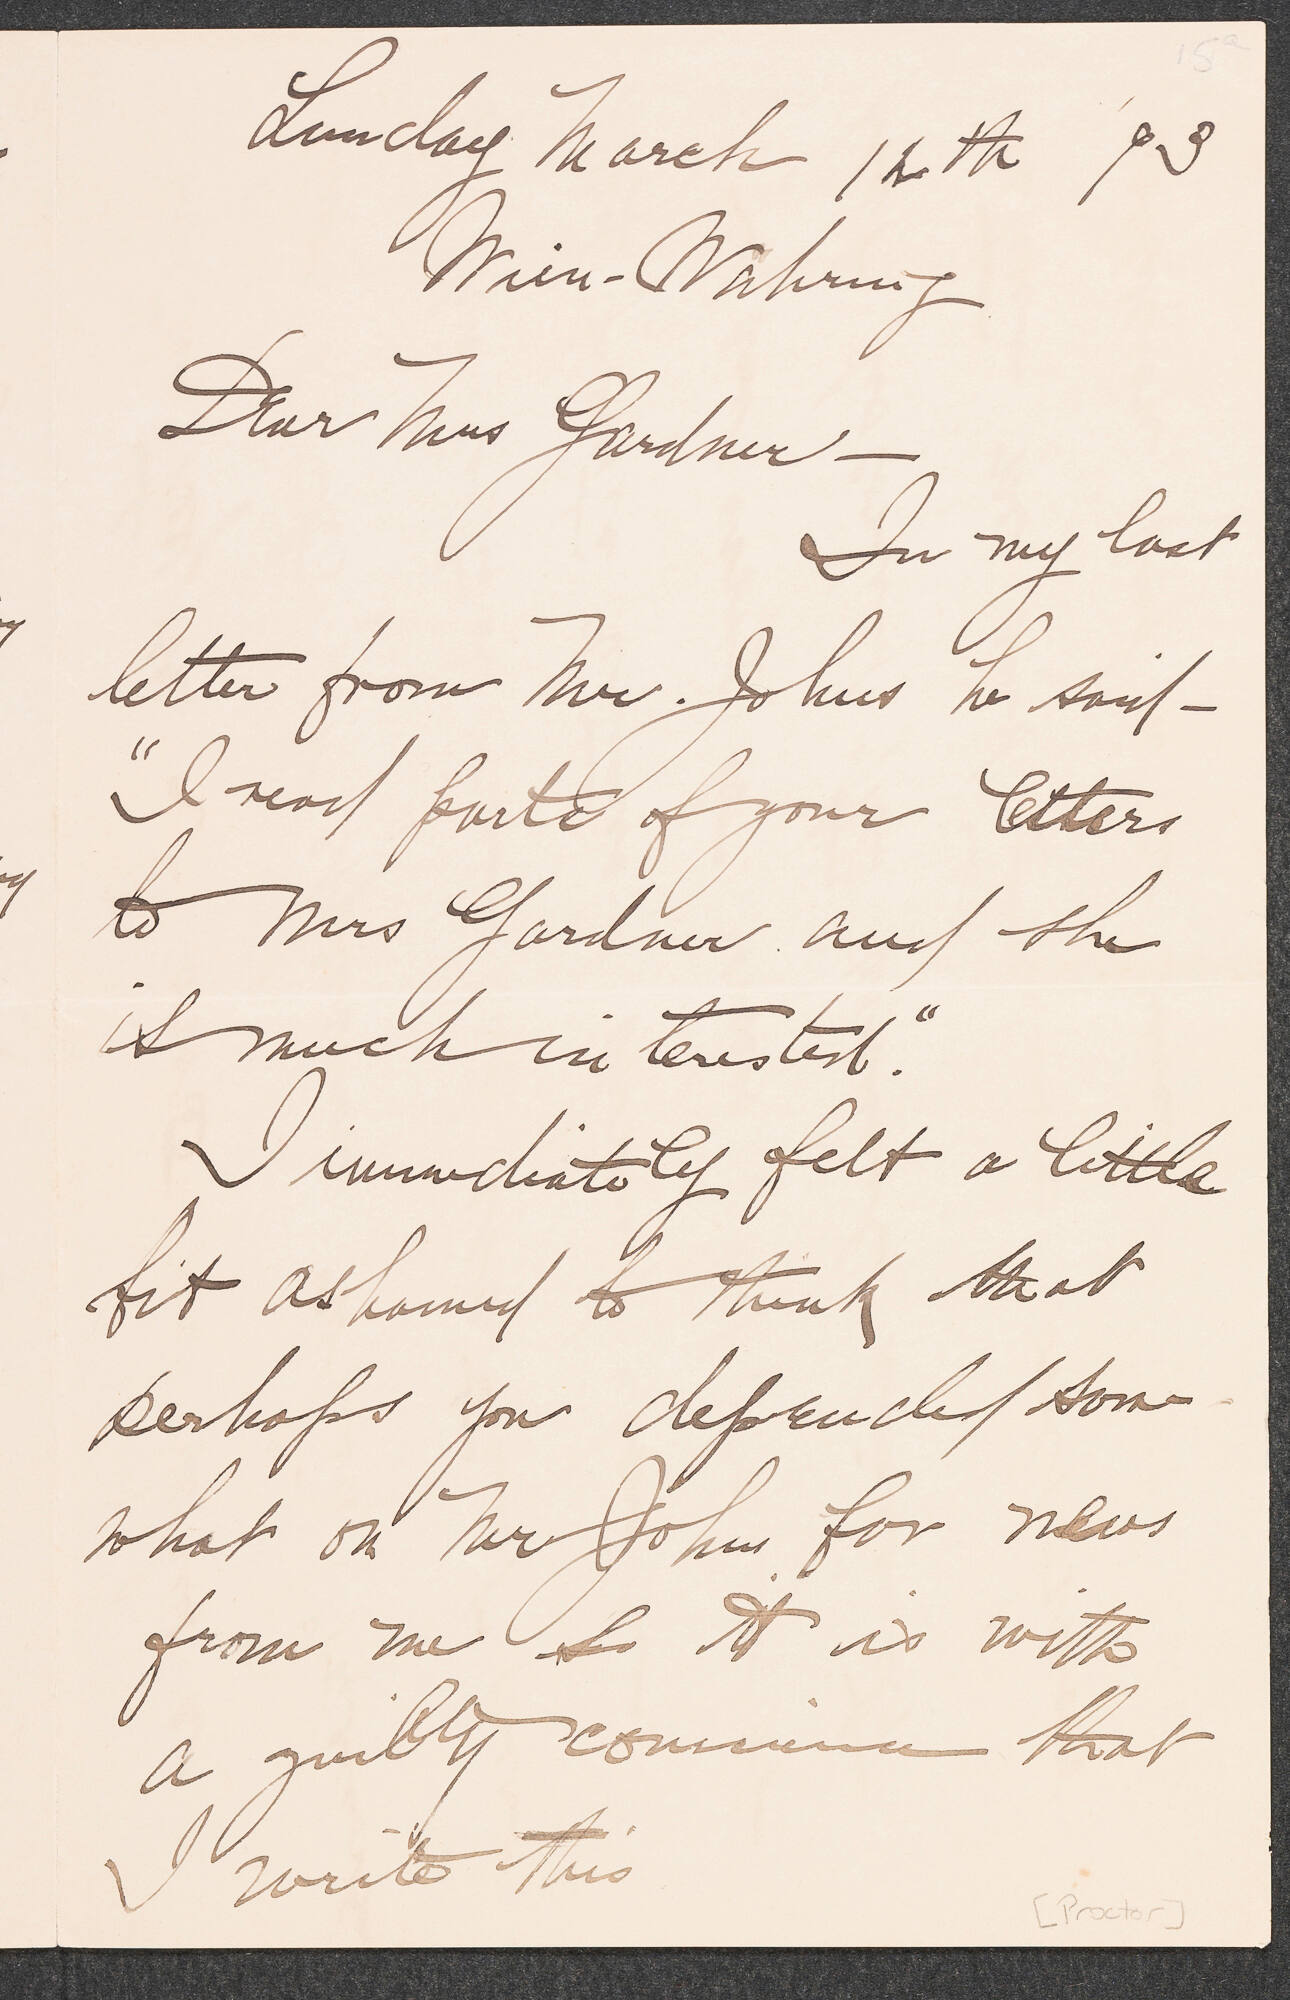 15a
Sunday March 12th '93
Wien-Wahring
Dear Mrs Gardner —
In my last
letter from Mr. Johns he said —
"I read parts of your letters
to Mrs Gardner and she
is much interested."
I immediately felt a little
bit ashamed to think that
perhaps you depended some
what on Mr Johns for news
from me so it is with
a guilty conscience that
I write this
[Proctor]